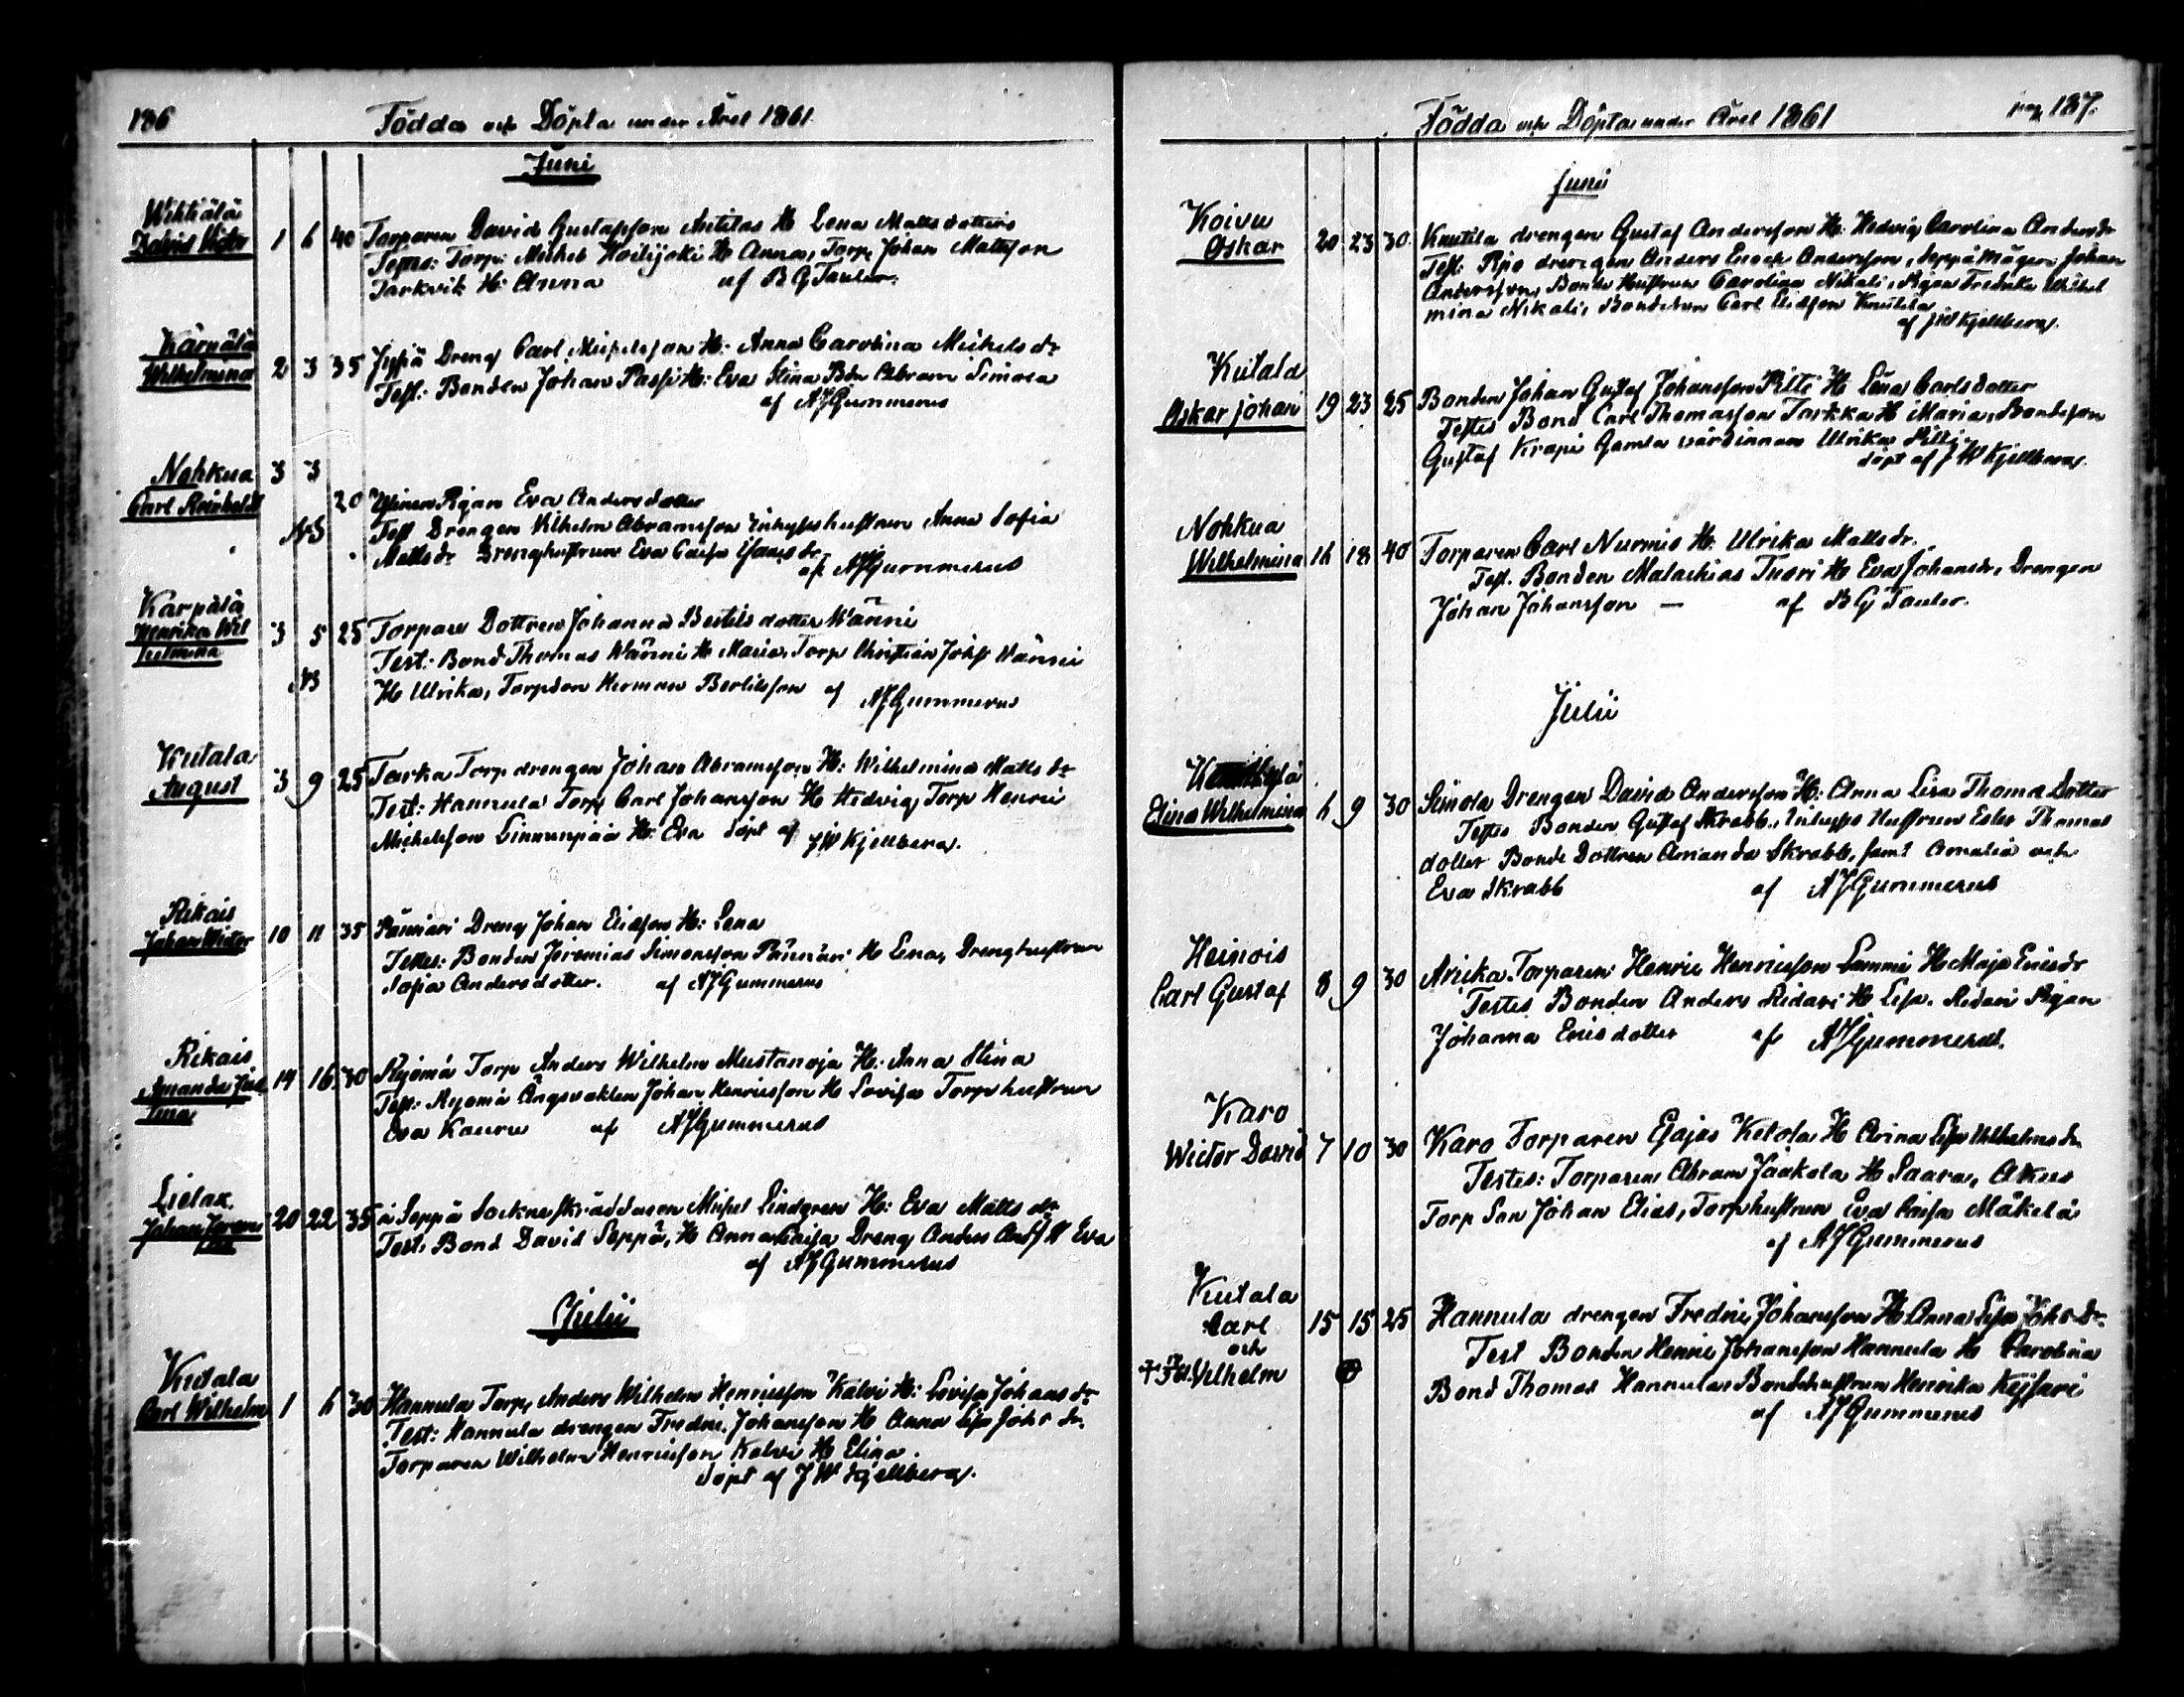 186 Födda och Döpta under Året 1861
Junii
Wihtiälä
David Victor 1 6 40 Torparen David Gustafsson Anttilas H Lena Matts dotters
Testes: Torp: Michel Hoilijoki H Anna, Torp Johan Mattsson
Tarkvik H: Anna af B G Tauler.
Kärnälä
Wilhelmina 2 3 35 Jyssä Dreng Carl Michelsson H: Anna Carolina Michels dr
Test: Bonden Johan Passi H: Eva Stina Bdn Abram Simola
af A J Gummerus
Nohkua 3 3
Carl Reinhold 20 Pigan Eva Andersdotter
Test Drengen Vilhelm Abramsson Inhyses hustrun Anna Sofia
Matts dr Dreng hustrun Eva Caisa dr
af A J Gummerus
Karpälä
Henrika Wil
helmina 3 5 25 Torpare Dottren Johanna Bertils dotter Wänni
Test: Bond Thomas Wänni H Maria, Torp Christian Johss Wänni
H Ulrika, Torpson Herman Bertilsson af A J Gummerus
Kutala
August 3 9 25 Tarka Torp drengen Johan Abramsson H: Wilhelmina Matts dr
Test: Hannula Torp Carl Johansson H Hedvig, Torp Henric
Michelsson Linnunpää H: Eva döpt af J W Kjellberg.
Rikais
Johan Victor 10 11 35 Pännäri Dreng Johan Eliasson H: Lena
Testes: Bonden Jeremias Simonsson Pännäri H Lena, Dreng hustrun
Sofia Anders dotter. af A J Gummerus
Rikais
Amanda Jus
tina 14 16 30 Ryömä Torp Anders Wilhelm Mustanoja H: Anna Stina
Test: Ryömä Ängsvakten Johan Henricsson H Lovisa Torp hustrun
Eva Kauru af A J Gummerus
Lielax
Johan 20 22 35 å Seppä Sockneskräddaren Michel Lindgren H: Eva Matts dr
Test. Bond David Seppä, H Anna Caisa Dreng Anders Andss H Eva
af A J Gummerus
Julii
Kutala
Carl Wilhelm 1 6 30 Hannula Torp Anders Wilhelm Henricsson Kalvi H: Lovisa Johans dr
Test: Hannula drengen Fredric Johansson H Anna Lisa Johs dr.
Torparen Wilhelm Henricsson Kalvi H Elina
döpt af J W Kjellberg.
Födda och Döpta under Året 1861 pag 187.
Junii
Koivu
Oskar 20 23 30 Knutila drengen Gustaf Andersson H: Hedvig Carolina Anders dr
Test: Ripo drengen Anders Enoch Andersson, Seppä Mågen Johan
Andersson, Bonde Hustrun Carolina Nikali, Pigan Fredrika Wilhel
mina Nikali, Bondeson Carl Eliasson Knutila
af J W Kjellberg.
Kutala
Oskar Johan 19 23 25 Bonden Johan Gustaf Johansson Pitti H Lena Carls dotter
Testes Bond Carl Thomasson Tarkka H Maria, Bondeson
Gustaf Krapi Gamla värdinnan Ulrika Pitti
döpt af J W Kjellberg.
Nohkua
Wilhelmina 16 18 40 Torparen Carl Nurmis H. Ulrika Matts dr.
Test. Bonden Malachias Tuori H Eva Johansdr, Drengen
Johan Johansson — af B G Tauler.
Julii
Elina Wilhelmina 6 9 30 Simola Drengen David Andersson H: Anna Lisa Thomæ Dotter
Testes Bonden Gustaf Skrabb, Inhyses Hustrun Ester Thomas
dotter Bonde Dottren Amanda Skrabb, samt Amalia och
Eva Skrabb af A J Gummerus
Heinois
Carl Gustaf 8 9 30 Anicka Torparen Henric Henricsson Lammi H Maja Ericsdr
Testes Bonden Anders Ridari H Lisa. Ridari Pigan
Johanna Erics dotter af A J Gummerus.
Karo
Wictor David 7 10 30 Karo Torparen Esajas Ketola H Anna Lisa Vilhelms dr
Testes: Torparen Abram Jaakola H Saara, Akus
Torp Son Johan Elias, Torp hustrun Eva Caisa Mäkelä
af A J Gummerus
Kutala
Carl 15 15 25 Hannula drengen Fredric Johansson H Anna Lisa Johs dr.
och
Vilhelm Test Bonden Henric Johansson Hannula H Carolina
Bond Thomas Hannula Bondehustrun Henrika Keisari
af A J Gummerus